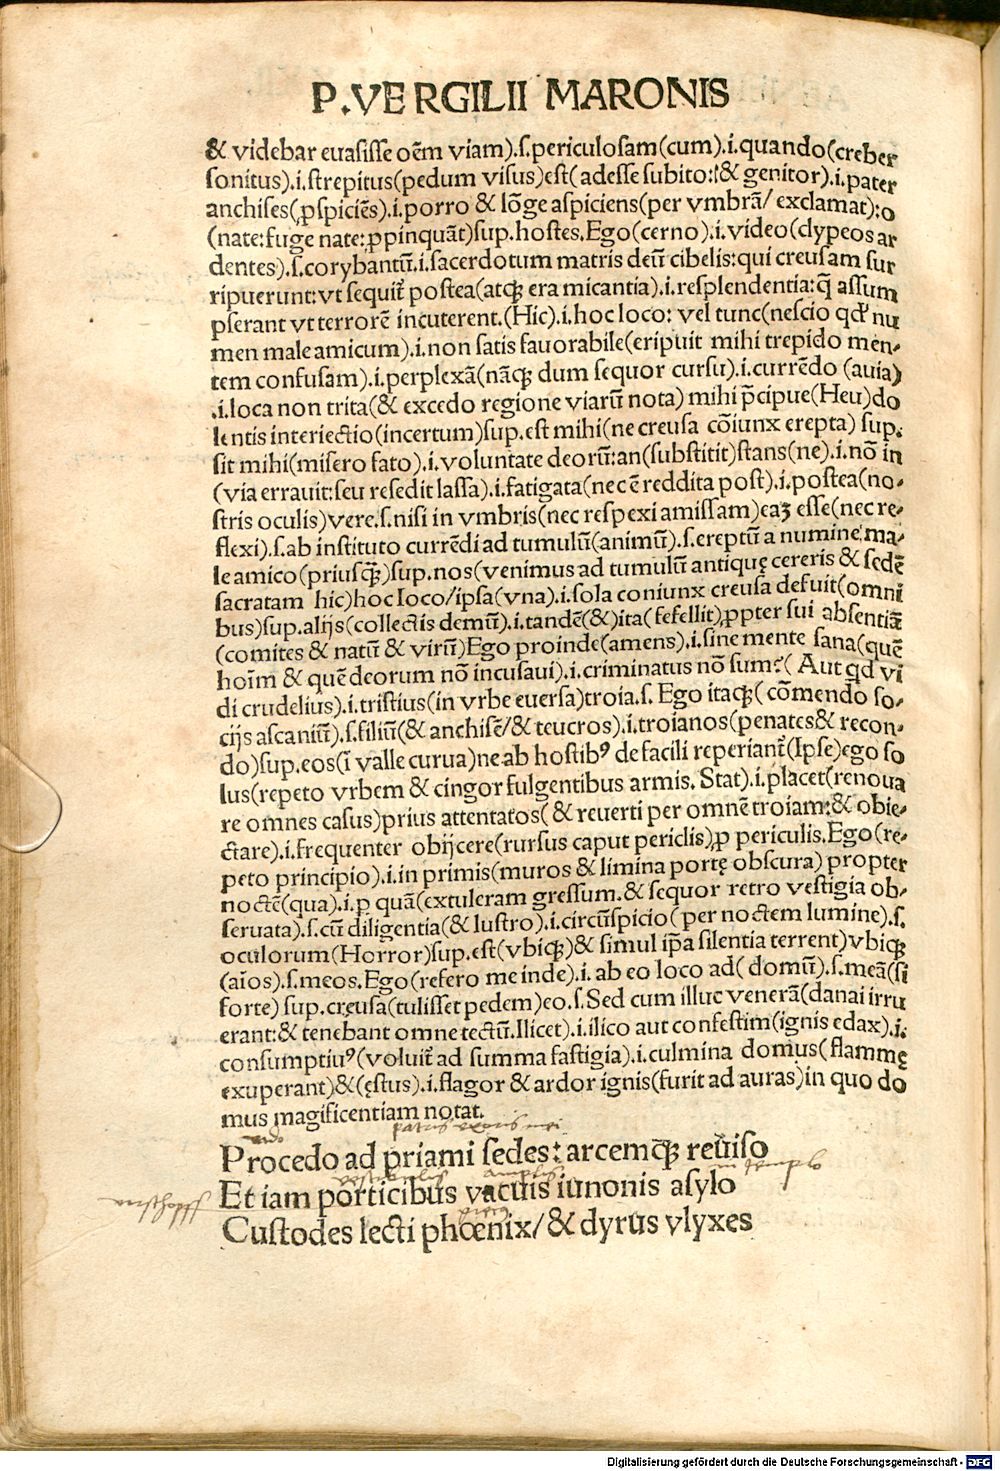 P.VERGILII MARONIS
& videbar euasisse oēm viam).s.periculosam(cum).i.quando(creber
sonitus).i.strepitus(pedum visus)est(adesse subito:(& genitor).i.pater
anchises(ꝓspiciēs).i.porro & lōge aspiciens(per vmbrā/ exclamat):o
(nate:fuge nate:ꝓpinquāt)sup.hostes.Ego(cerno).i.video(clypeos ar
dentes).s.corybantū.i.sacerdotum matris deū cibelis:qui creusam sur
ripuerunt:vt sequit᷑ postea(atqꝫ era micantia).i.resplendentia:q̄ assum
pserant vt terrorē incuterent.(Hic).i.hoc loco: vel tunc(nescio qd' nu
men male amicum).i.non satis fauorabile(eripuit mihi trepido men-
tem confusam).i.perplexā(nāqꝫ dum sequor cursu).i.currēdo (auia)
.i.loca non trita(& excedo regione viarū nota) mihi p̄cipue(Heu)do
lentis interiectio(incertum)sup.est mihi(ne creusa cōiunx erepta) sup.
sit mihi(misero fato).i.voluntate deorū:an(substitit)stans(ne).i.nō in
(via errauit:seu resedit lassa).i.fatigata(nec ē reddita post).i.postea(no-
stris oculis)vere.s.nisi in vmbris(nec respexi amissam)eaꝫ esse(nec re-
flexi).s.ab instituto currēdi ad tumulū(animū).s.ereptū a numine ma-
le amico(priusqꝫ̄)sup.nos(venimus ad tumulū antiquę cereris & sedē
sacratam hic)hoc loco/ipsa(vna).i.sola coniunx creusa defuit(omni
bus)sup.alijs(collectis demū).i.tandē(&)ita(fefellit)ꝓpter sui absentiā
(comites & natū & virū)Ego proinde(amens).i.sine mente sana(quē
hoīm & quē deorum nō incusaui).i.criminatus nō sum?( Aut qd vi
di crudelius).i.tristius(in vrbe euersa)troia.s. Ego itaqꝫ( cōmendo so-
cijs ascaniū).s.filiū(& anchisē/& teucros).i.troianos(penates& recon-
do)sup.eos(ī valle curua)ne ab hostibꝰ de facili reperiant᷑(Ipse)ego so
lus(repeto vrbem & cingor fulgentibus armis. Stat).i.placet(renoua
re omnes casus)prius attentatos( & reuerti per omnē troiam:& obie-
ctare).i.frequenter obijcere(rursus caput periclis)ꝓ periculis.Ego(re-
peto principio).i.in primis(muros & limina portę obscura) propter
noctē(qua).i.ꝑ quā(extuleram gressum.& sequor retro vestigia ob-
seruata).s.cū diligentia(& lustro).i.circūspicio(per noctem lumine).s.
oculorum(Horror)sup.est(vbiqꝫ)& simul ip̄a silentia terrent)vbiqꝫ
(aīos).s.meos.Ego(refero me inde).i.ab eo loco ad( domū).s.meā(si
forte) sup.creusa(tulisset pedem)eo.s.Sed cum illuc venerā(danai irru
erant:& tenebant omne tectū.Ilicet).i.ilico aut confestim(ignis edax).i.
consumptiuꝰ(voluit᷑ ad summa fastigia).i.culmina domus(flammę
exuperant)&(ęstus).i.flagor & ardor ignis(furit ad auras)in quo do
mus magificentiam notat.
Procedo ad priami sedes: arcemqꝫ reuiso
in templo
Et iam porticibus vacuis iunonis asylo
Custodes lecti phœnix/& dyrus vlyxes
Digitalisierung gefördert durch die Deutsche Forschungsgemeinschaft - DFG